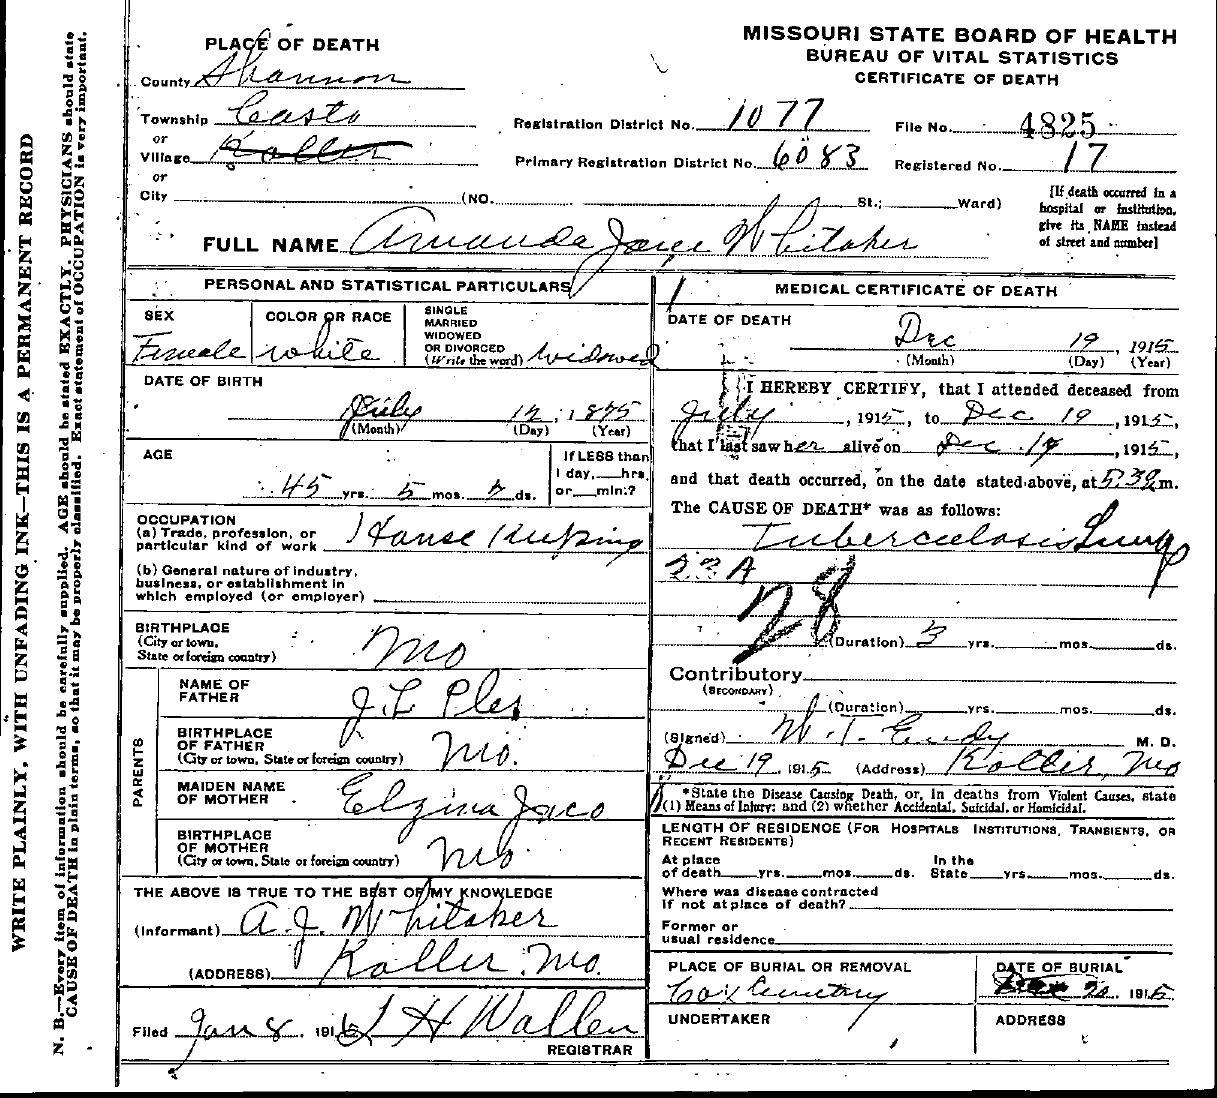 WRITE PLAINLY, WITH UNFADING INK—THIS IS A PERMANENT RECORD
N. B.—Every item of information should be carefully supplied. AGE should be stated EXACTLY. PHYSICIANS should state
CAUSE OF DEATH in plain terms, so that it may be properly classified. Exact statement of OCCUPATION is very important.
MISSOURI STATE BOARD OF HEALTH
BUREAU OF VITAL STATISTICS
CERTIFICATE OF DEATH
PLACE OF DEATH
County Shannon
Township Casto
or
Village Koller
or
City (NO. St.; Ward)
Registration District No. 1077
Primary Registration District No. 6083
File No. 4825
Registered No. 17
[If death occurred in a
hospital or institution,
give its NAME instead
of street and number]
FULL NAME Amanda Jane Whitaker
PERSONAL AND STATISTICAL PARTICULARS
SEX
Female
COLOR OR RACE
white
SINGLE
MARRIED
WIDOWED
OR DIVORCED
(Write the word) widowed
DATE OF BIRTH
July 12, 1875
(Month) (Day) (Year)
AGE
45 yrs. 5 mos. 7 ds.
If LESS than
1 day, hrs.
or min.?
OCCUPATION
(a) Trade, profession, or
particular kind of work House Keeping
(b) General nature of industry,
business, or establishment in
which employed (or employer)
BIRTHPLACE
(City or town,
State or foreign country) Mo
PARENTS
NAME OF
FATHER J. L. Ples
BIRTHPLACE
OF FATHER
(City or town, State or foreign country) Mo.
MAIDEN NAME
OF MOTHER Elzina Jaco
BIRTHPLACE
OF MOTHER
(City or town, State or foreign country) Mo.
THE ABOVE IS TRUE TO THE BEST OF MY KNOWLEDGE
(Informant) A. J. Whitaker
(ADDRESS) Koller, Mo.
Filed Jan 8, 1916 J H Wallen
REGISTRAR
MEDICAL CERTIFICATE OF DEATH
DATE OF DEATH
Dec 19, 1915
(Month) (Day) (Year)
I HEREBY CERTIFY, that I attended deceased from
July, 1915, to Dec 19, 1915,
that I last saw her alive on Dec. 19, 1915,
and that death occurred, on the date stated above, at 5:30 m.
The CAUSE OF DEATH* was as follows:
Tuberculosis Lungs
23 A
28
(Duration) 3 yrs. mos. ds.
Contributory
(SECONDARY)
(Duration) yrs. mos. ds.
(Signed) W. T. Eudy M. D.
Dec 19, 1915 (Address) Koller, Mo
*State the Disease Causing Death, or, in deaths from Violent Causes, state
(1) Means of Injury; and (2) whether Accidental, Suicidal, or Homicidal.
LENGTH OF RESIDENCE (FOR HOSPITALS INSTITUTIONS, TRANSIENTS, OR
RECENT RESIDENTS)
At place
of death yrs. mos. ds.
In the
State yrs. mos. ds.
Where was disease contracted
If not at place of death?
Former or
usual residence
PLACE OF BURIAL OR REMOVAL
Cox Cemetery
DATE OF BURIAL
20 1915
UNDERTAKER
ADDRESS